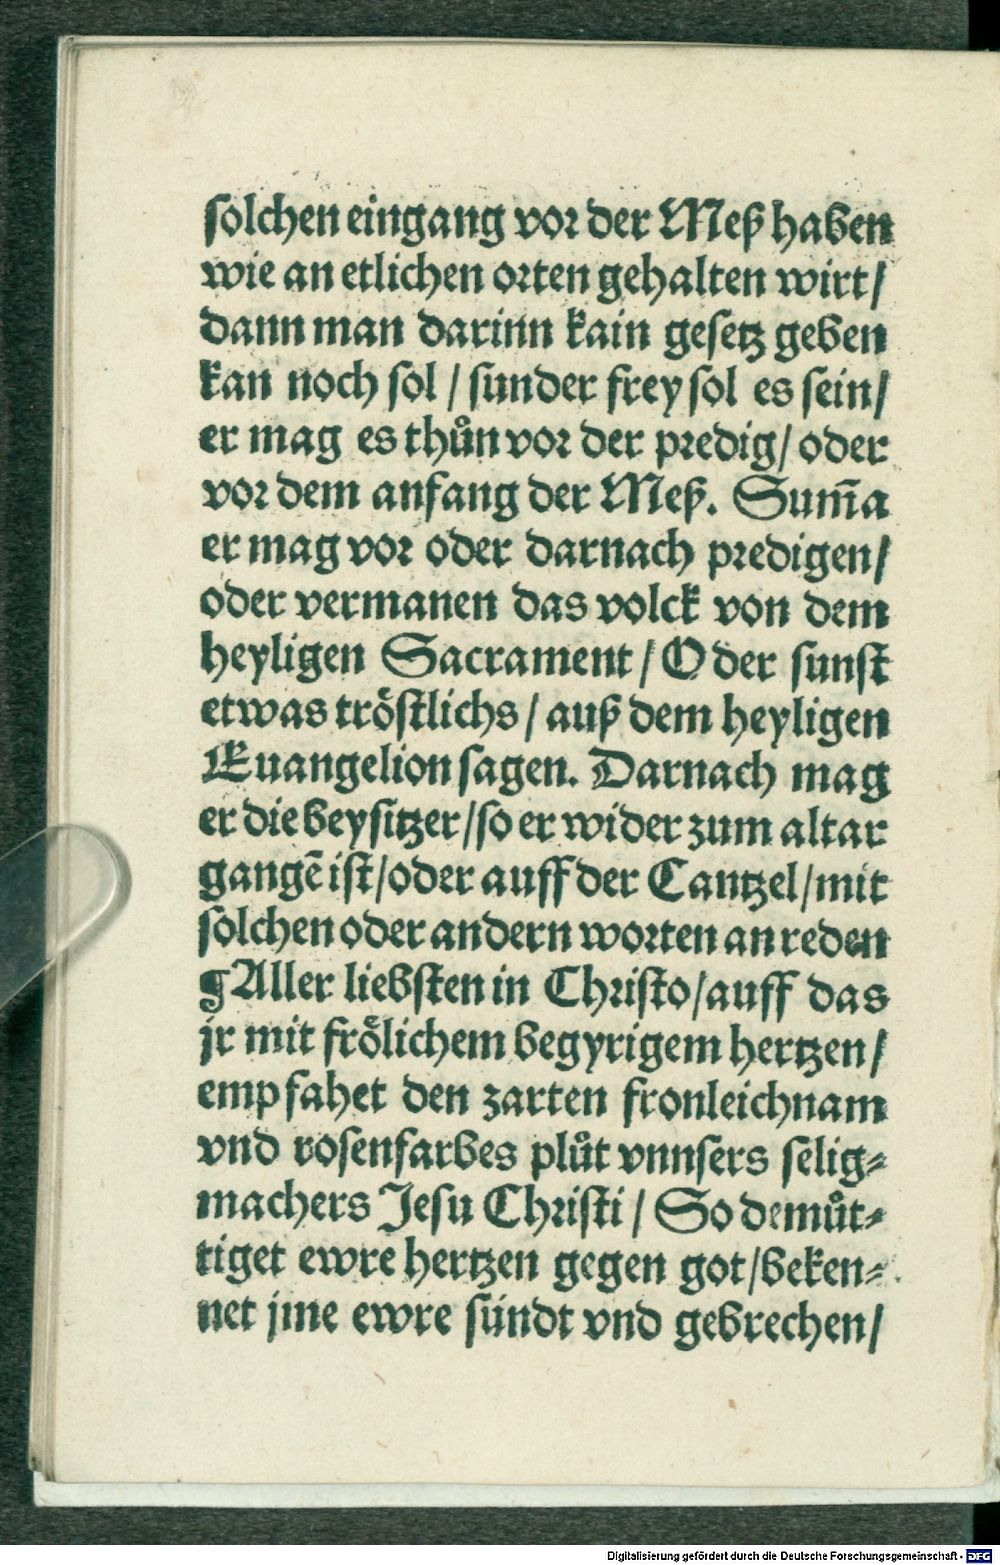 solchen eingang vor der Meß haben
wie an etlichen orten gehalten wirt /
dann man darinn kain gesetz geben
kan noch sol / sunder frey sol es sein /
er mag es thůn vor der predig / oder
vor dem anfang der Meß. Sum̄a
er mag vor oder darnach predigen /
oder vermanen das volck von dem
heyligen Sacrament / Oder sunst
etwas trőstlichs / auß dem heyligen
Euangelion sagen. Darnach mag
er die beysitzer / so er wider zum altar
gangē ist / oder auff der Cantzel / mit
solchen oder andern worten an reden
¶ Aller liebsten in Christo / auff das
jr mit frőlichem begyrigem hertzen /
empfahet den zarten fronleichnam
vnd rosenfarbes plůt vnnsers selig⸗
machers Jesu Christi / So demůt⸗
tiget ewre hertzen gegen got / beken⸗
net jme ewre sündt vnd gebrechen /
Digitalisierung gefördert durch die Deutsche Forschungsgemeinschaft - DFG